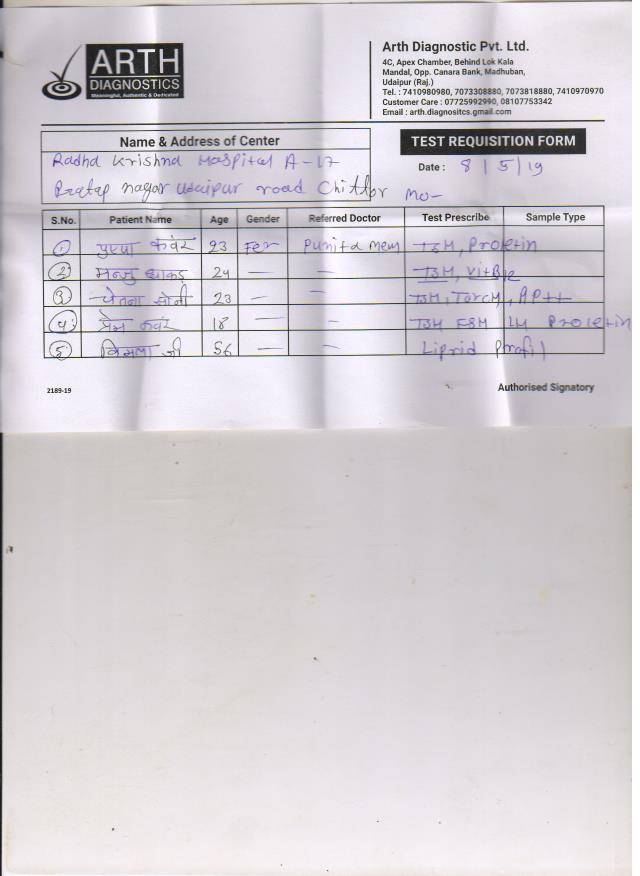 ARTH
DIAGNOSTICS
Meaningful, Authentic & Dedicated
Arth Diagnostic Pvt. Ltd.
4C, Apex Chamber, Behind Lok Kala
Mandal, Opp. Canara Bank, Madhuban,
Udaipur (Raj.)
Tel. : 7410980980, 7073308880, 7073818880, 7410970970
Customer Care : 07725992990, 08107753342
Email : arth.diagnositcs.gmail.com
Name & Address of Center
Radha Krishna Hospital A-17
Pratap nagar Udaipur road Chittor mo-
TEST REQUISITION FORM
Date : 8/5/19
S.No. Patient Name Age Gender Referred Doctor Test Prescribe Sample Type
1 पुष्पा कंवर 23 Fer Punita mem T3M, Protein
2 मन्जु धाकड़ 24 — — T3M, Vit B12
3 चेतना सोनी 23 — — T3M, Torch, APtt
4 प्रेम कवंर 18 — — T3M FSM LM Proletin
5 विमला जी 56 — — Liprid Profil
2189-19
Authorised Signatory